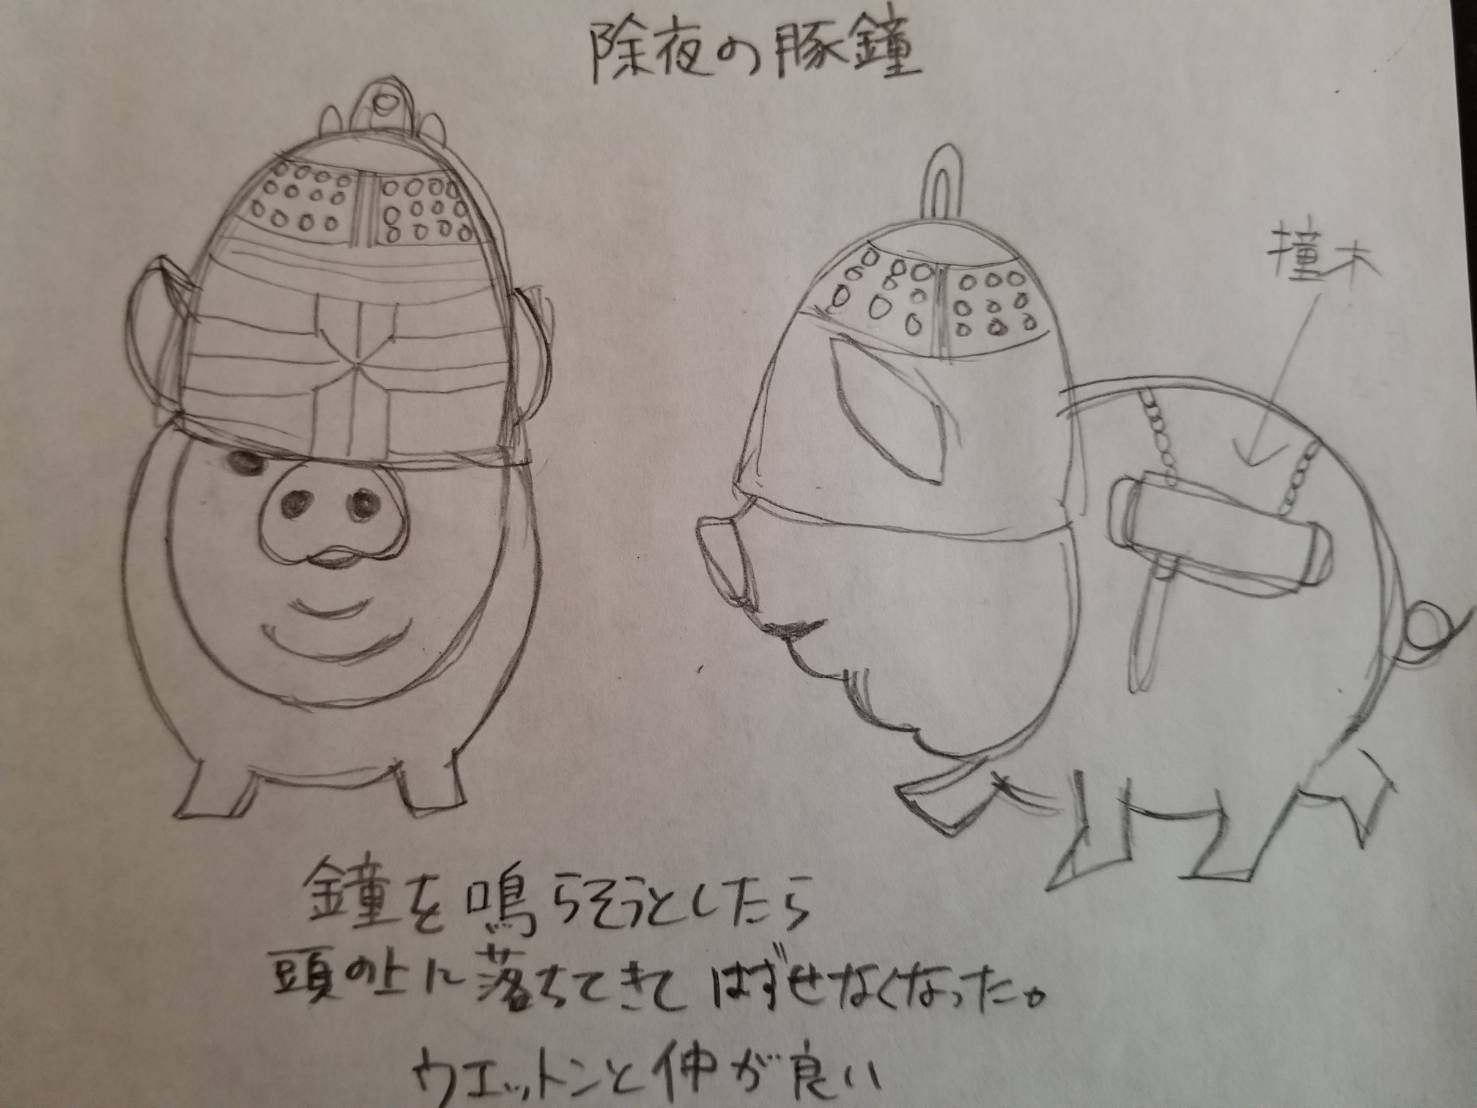 除夜の豚鐘
撞木
鐘を鳴らそうとしたら
頭の上に落ちてきてはずせなくなった。
ウエットンと仲が良い